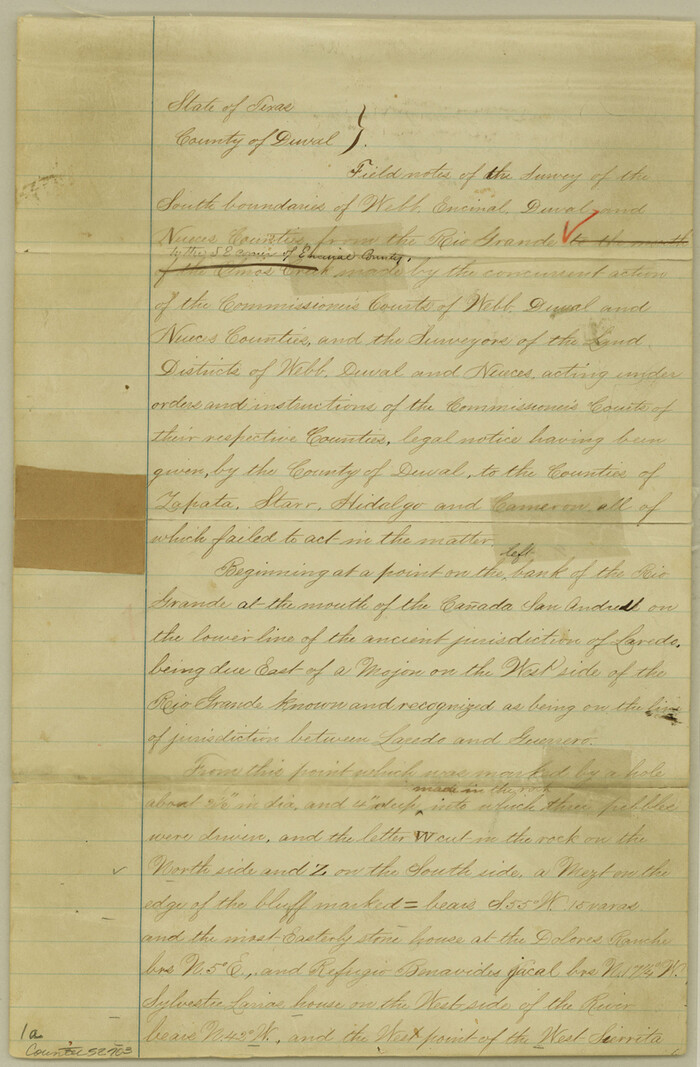 State of Texas
County of Duval }.
Field notes of the Survey of the
South boundaries of Webb, Encinal, Duval, and
Nueces Counties, from the Rio Grande to the mouth
to the S E corner of Encinal County,
of the Olmos Creek, made by the concurrent action
of the Commissioner's Courts of Webb, Duval and
Nueces Counties, and the Surveyors of the Land
Districts of Webb, Duval and Nueces, acting under
orders and instructions of the Commissioner's Courts of
their respective Counties, legal notice having been
given, by the County of Duval, to the Counties of
Zapata, Starr, Hidalgo and Cameron, all of
which failed to act in the matter
left
Beginning at a point on the bank of the Rio
Grande at the mouth of the Cañada San Andres on
the lower line of the ancient jurisdiction of Laredo,
being due East of a Mojon on the West side of the
Rio Grande known and recognized as being on the line
of jurisdiction between Laredo and Guerrero.
From this point which was marked by a hole
made in the rock
about in dia. and 4" deep, into which three pebbles
were driven, and the letter W cut in the rock on the
North side and Z on the South side, a Mezt on the
edge of the bluff marked = bears S.55°W. 15 varas
and the most Easterly stone house at the Dolores Ranche
brs N.5°E., and Refugio Benavides jacal brs W.
Sylvestre Larios house on the West side of the River
bears N.43°W., and the West point of the West Sierrita
1a
Counter 52903